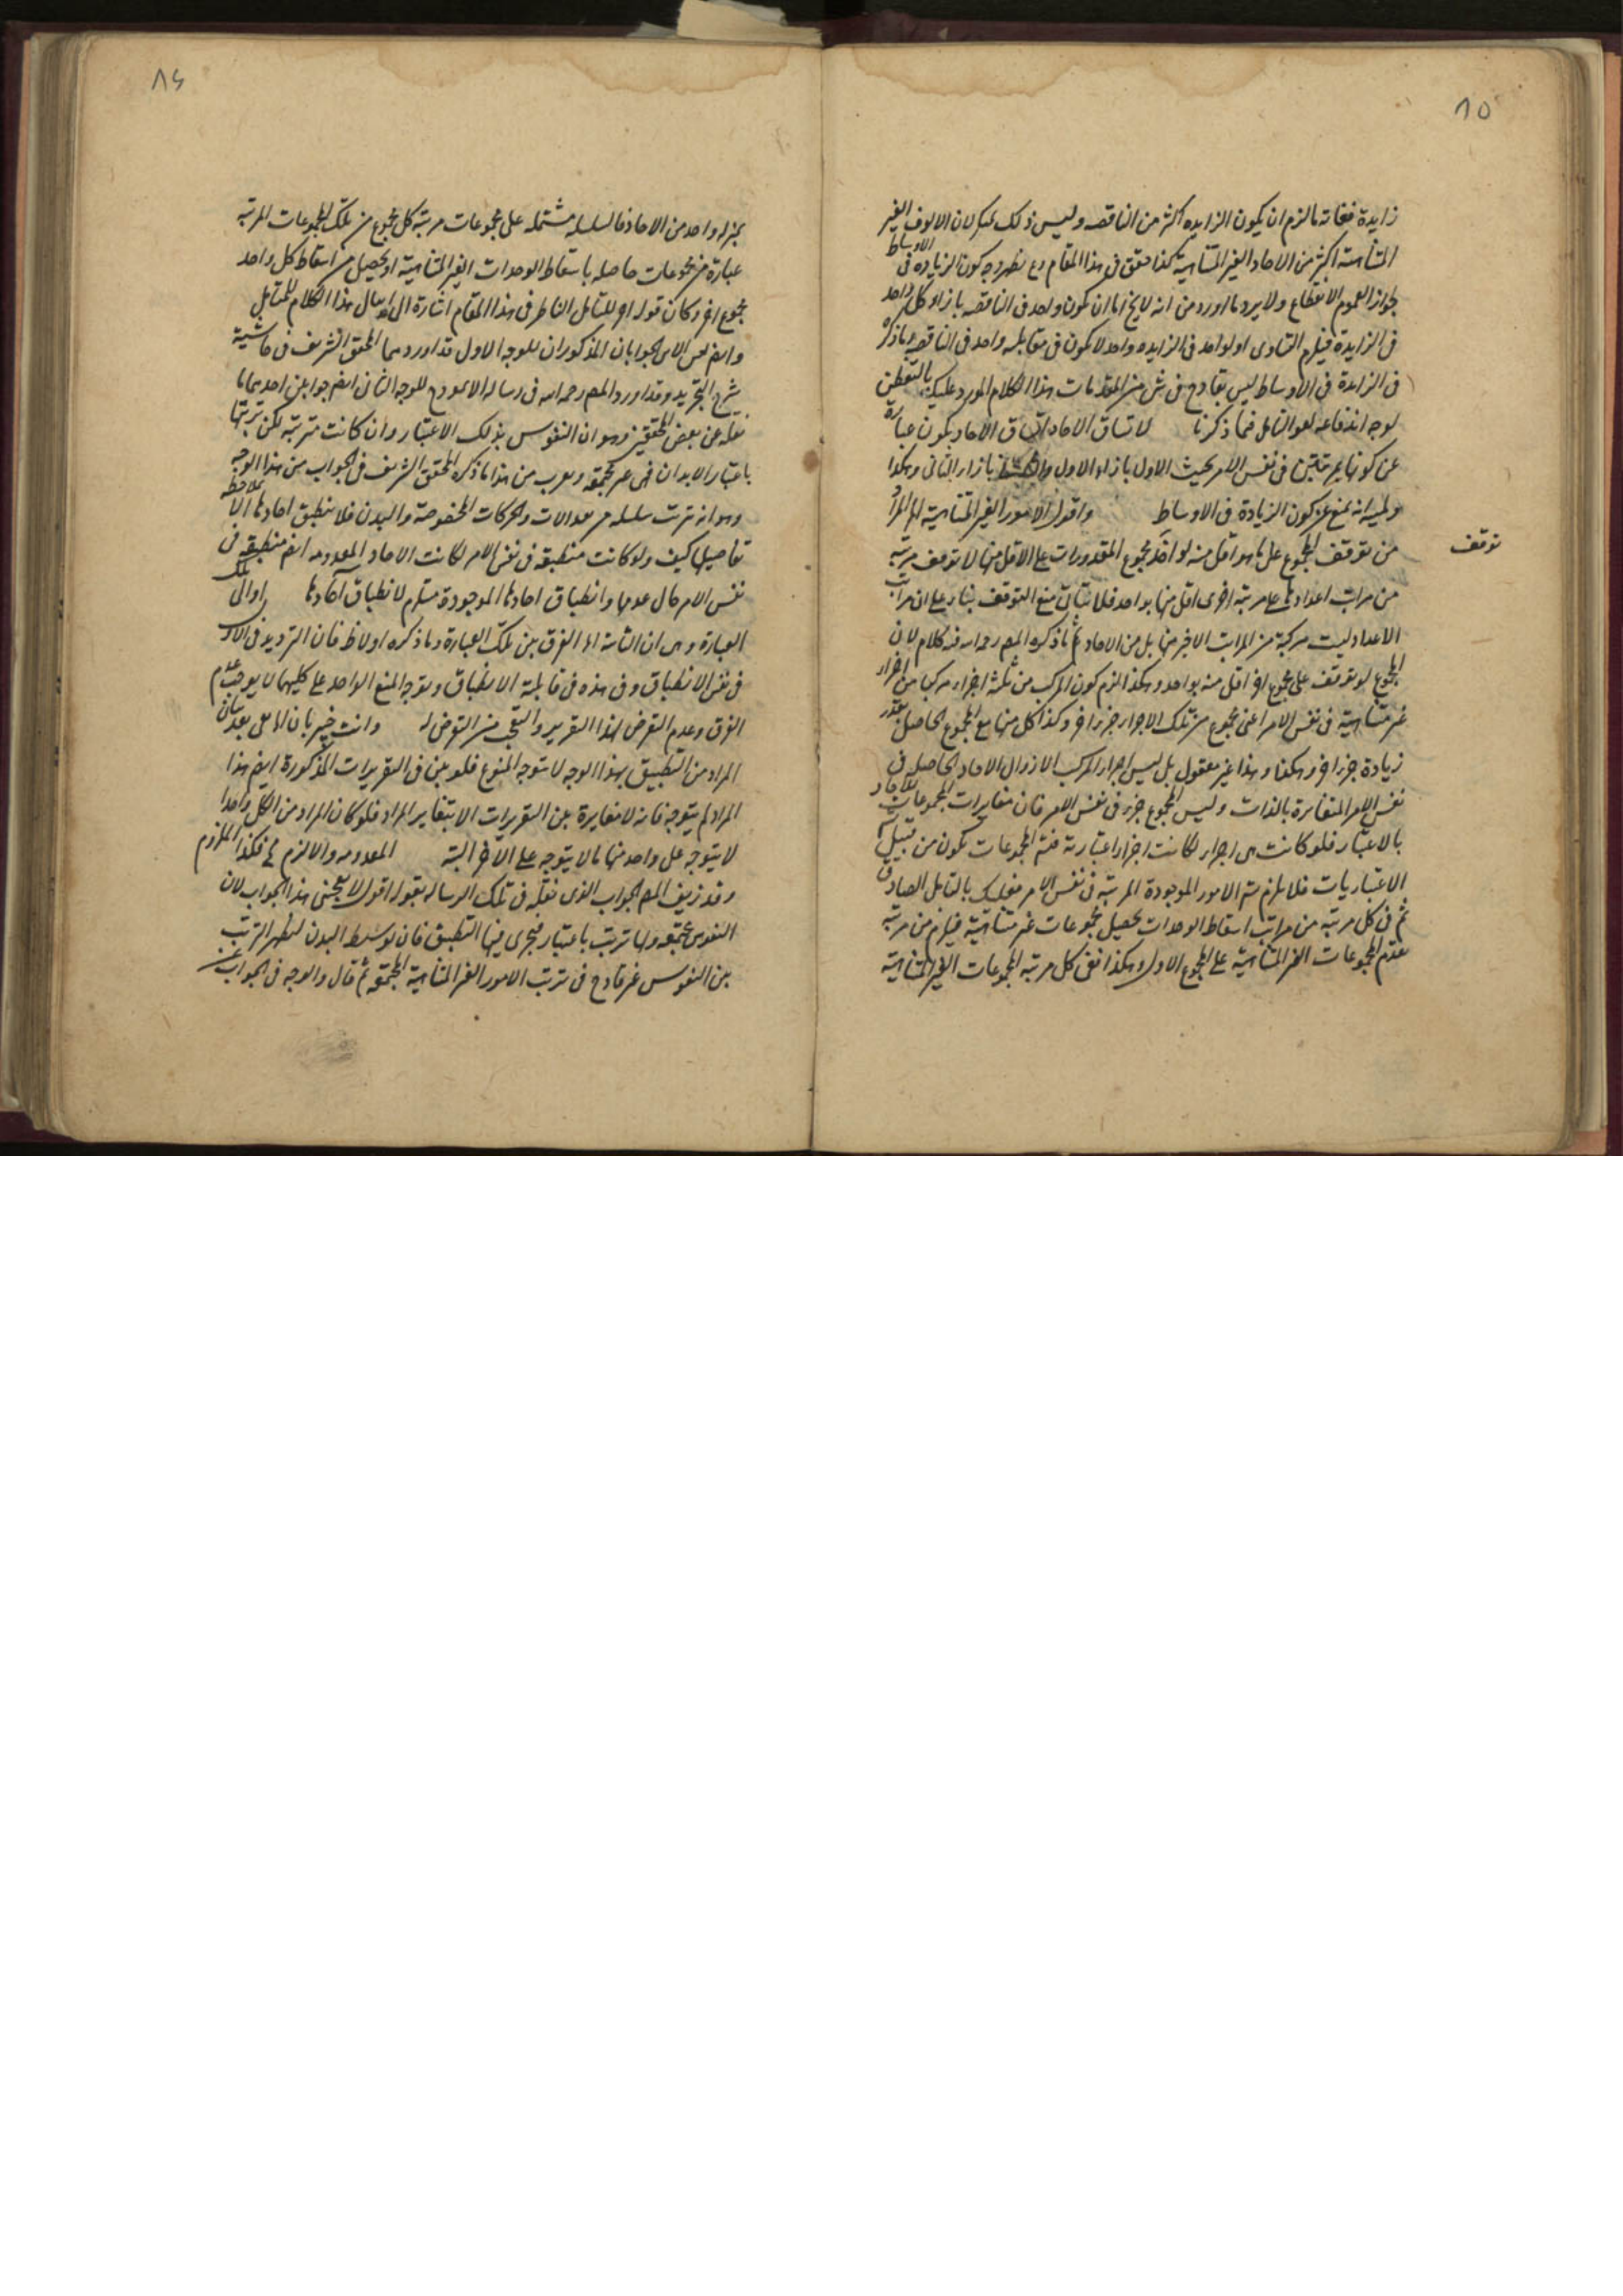 ٨٥
زايدة فغاته مالزم ان يكون الزايده اكثر من الناقصه وليس ذلك بمحال لان الالوف الغير
المتناهية اكثر من الاحاد الغير المتناهية كذا حقق فى هذا المقام وح يظهر وجه كون الزياده فى الاوساط
لجواز العموم الانقطاع ولا يرد ما اورد من انه لا يخ اما ان يكون واحد فى الناقصه بازاء كل واحد
فى الزايدة فيلزم التساوى او لواحد فى الزايده واحد لا يكون فى مقابله واحد فى الناقصه وما ذكر
فى الزايدة فى الاوساط ليس بقادح فى شئ من المقدمات هذا الكلام المورد عليك بالتفطن
لوجه اندفاعه بعد التامل فيما ذكرنا لاتساق الاحاد اتساق الاحاد يكون عبارة
عن كونها مرتبتين فى نفس الامر بحيث الاول بازاء الاول والثانى بازاء الثانى وهكذا
ولميه انه يمنع عن كون الزيادة فى الاوساط واقول الامور الغير المتناهية الخ المراد
من توقف المجموع على ما هو اقل منه لو اخذ مجموع المقدورات على الاقل منها لا توقف مرتبه
توقف
من مراتب اعدادها على مرتبه اخرى اقل منها بواحد فلا يتاتى منع التوقف بناء على ان مراتب
الاعداد ليست مركبة من المراتب الاخر منها بل من الاحاد ثم ما ذكره المصـ رحمه الله فيه كلام لان
المجموع لو توقف على مجموع اخر اقل منه بواحد وهكذا لزم كون المركب من ثلثة اجزاء مركبا من اجزاء
غير متناهية فى نفس الامر اعنى مجموع من تلك الاجزاء جزء اخر وكذا كل منها مع المجموع الحاصل بقدر
زيادة جزء اخر وهكذا وهذا غير معقول بل ليس اجزاء المركب الا زوال الاحاد الحاصله فى
نفس الامر المتغايرة بالذات وليس المجموع جزء فى نفس الامر فان مغايرات المجموعات للاحاد
بالاعتبار فلو كانت هى اجزاء لكانت اجزاء اعتبارية فتلك المجموعات تكون من قبيل
الاعتباريات فلا يلزم ثم الامور الموجودة المرتبه فى نفس الامر فعليك بالتامل الصادق
ثم فى كل مرتبه من مراتب اسقاط الوحدات يحصل مجموعات غير متناهية فيلزم من مرتبه
تقدم المجموعات الغير المتناهية على المجموع الاول وهكذا ففى كل مرتبه المجموعات الغير المتناهية
٨٤
بجزء واحد من الاحاد فالسلسله مشتمله على مجموعات مرتبه كل مجموع من تلك المجموعات المرتبه
عبارة من مجموعات حاصله باسقاط الوحدات الغير المتناهية او يحصل من اسقاط كل واحد
مجموع اخر وكان قوله او للتامل الناظر فى هذا المقام اشارة الى امثال هذا الكلام للمتامل
الجوابان المذكوران للوجه الاول قد اوردهما المحقق الشريف فى حاشية
شرح التجريد وقد اورد المصـ رحمه الله فى رساله الانموذج للوجه الثانى ايضم جوابين احدهما ما
نقله عن بعض المحققين وهو ان النفوس بذلك الاعتبار وان كانت مترتبه لكن ترتبها
باعتبار الابدان فهى غير مجتمعه ويقرب من هذا ما ذكره المحقق الشريف فى الجواب من هذا الوجه
وهو انه ترتب سلسله من معدات والحركات المخصوصة والبدن فلا ينطبق احادها الا بملاحظه
تفاصيلها كيف ولو كانت منطبقه فى نفس الامر لكانت الاحاد المعدومه ايضم منطبقه فى
نفس الامر حال عدمها وانطباق احادها الموجودة مستلزم لانطباق آحادها او الى تلك
العبارة وهى ان الفرق بين تلك العبارة وما ذكره اولا ظ فان الترديد فى الاول
فى نفس الانطباق وفى هذه فى قابلية الانطباق وتوجه المنع الواحد على كليهما لا يوجب عدم
الفرق وعدم التعرض لهذا التقرير والتعجب من التعرض له وانت خبير بان بعد بيان
المراد من التطبيق بهذا الوجه لا يتوجه المنوع فلو بين فى التقريرات المذكورة ايضم هذا
المراد لم يتوجه فانه لا مغايرة بين التقريرات الا بتغاير المراد فلو كان المراد من الكل واحدا
لا يتوجه على واحد منها ما لا يتوجه على الآخر البته المعدومه والا لزم مح فكذا الملزوم
وقد زيف المصـ الجواب الذى نقله فى تلك الرساله بقوله اقول لا يعجبنى هذا الجواب لان
النفوس مجتمعه ولها ترتيب باعتبار فيجرى فيها التطبيق فان توسط البدن لظهر الترتيب
بين النفوس غير قادح فى ترتب الامور الغير المتناهية المجتمعه ثم قال والوجه فى الجواب عن